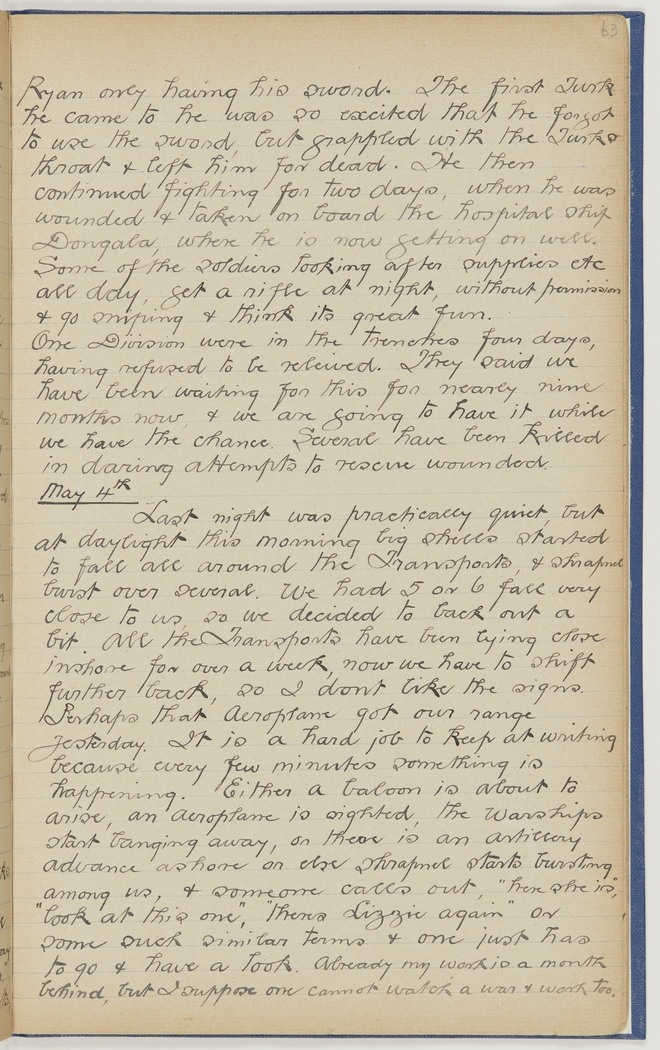 63
Ryan only having his sword. The first Turk
he came to he was so excited that he forgot
to use the sword, but grappled with the Turks
throat & left him for dead. He then
continued fighting for two days, when he was
wounded & taken on board the hospital ship
Dongala, where he is now getting on well.
Some of the soldiers looking after supplies etc
all day, get a rifle at night, without permission
& go sniping & think its great fun.
One Division were in the trenches four days,
having refused to be releived. They said we
have been waiting for this for nearly nine
months now, & we are going to have it while
we have the chance. Several have been killed
in daring attempts to rescue wounded.
May 4th
Last night was practically quiet, but
at daylight this morning big shells started
to fall all around the Transports, & shrapnel
burst over several. We had 5 or 6 fall very
close to us, so we decided to back out a
bit. All the Transports have been lying close
inshore for over a week, now we have to shift
further back, so I dont like the signs.
Perhaps that Aeroplane got our range
yesterday. It is a hard job to keep at writing
because every few minutes something is
happening. Either a baloon is about to
arise, an aeroplane is sighted, the Warships
start banging away, or there is an artillery
advance ashore or else shrapnel starts bursting
among us, & someone calls out, "here she is",
"look at this one", "theres Lizzie again" or
some such similar terms & one just has
to go & have a look. Already my work is a month
behind, but I suppose one cannot watch a war & work too.